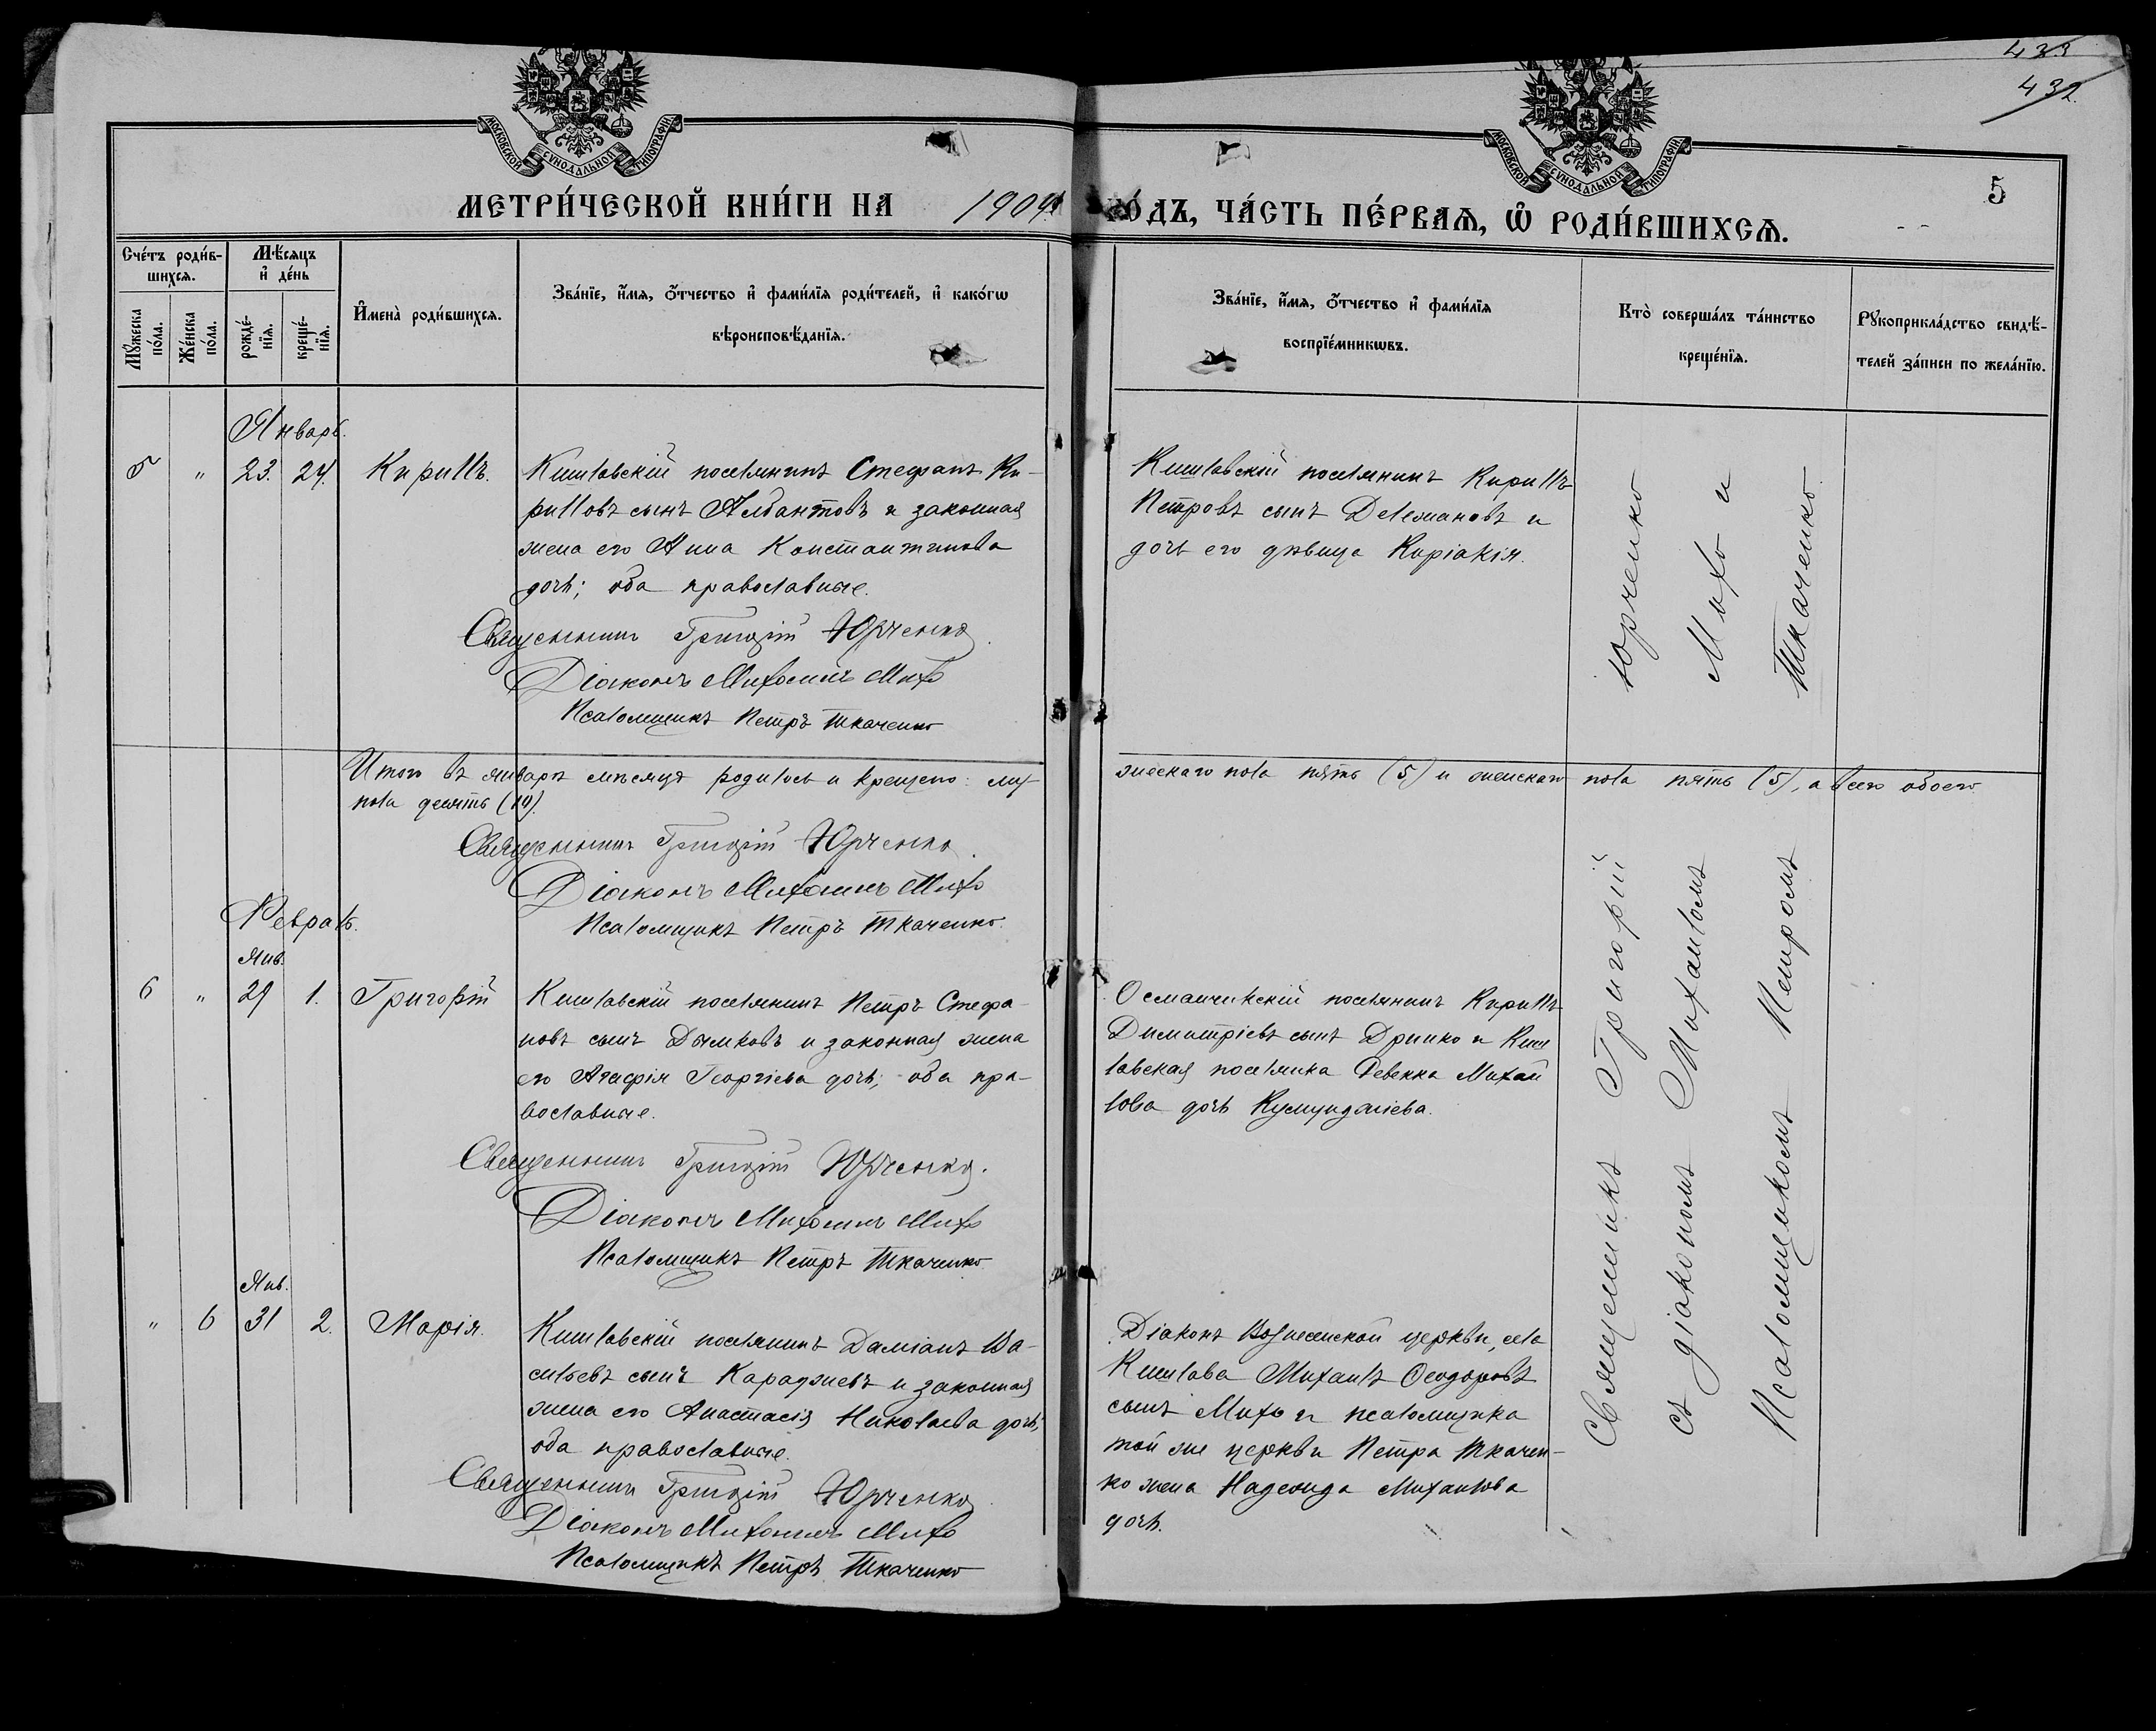 433
432
МОСКОВСКОЙ СУНОДАЛЬНОЙ ТИПОГРАФІИ
МОСКОВСКОЙ СУНОДАЛЬНОЙ ТИПОГРАФІИ
5
МЕТРИ́ЧЕСКОЙ КНИ́ГИ НА 1904
го́дъ, ЧА́СТЬ ПЕ́РВАѦ, Ѡ҆ РОДИ́ВШИХСѦ.
Сче́тъ роди́в-
шихсѧ.
Мꙋ́жеска по́ла.
Же́нска по́ла.
Мѣ́сѧцъ
и҆ де́нь
рожде́-
нїѧ.
креще́-
нїѧ.
И҆мена̀ роди́вшихсѧ.
Зва́нїе, и҆́мѧ, ѻ҆́тчество и҆ фами́лїѧ роди́телей, и҆ како́гѡ
вѣроисповѣ́данїѧ.
Зва́нїе, и҆́мѧ, ѻ҆́тчество и҆ фами́лїѧ
воспрїе́мникѡвъ.
Кто̀ соверша́лъ та́инство
креще́нїѧ.
Рꙋкоприкла́дство свидѣ́-
телей за́писи по жела́нїю.
Январь.
5 " 23. 24. Кириллъ.
Кишлавскій поселянинъ Стефанъ Ки-
рилловъ сынъ Албантовъ и законная
жена его Анна Константинова
дочь; оба православные.
Священникъ Григорій Юрченко.
Діаконъ Михаилъ Михо
Псаломщикъ Петръ Ткаченко
Кишлавскій поселянинъ Кириллъ
Петровъ сынъ Делемановъ и
дочь его дѣвица Киріакія.
Итого въ январѣ мѣсяцѣ родилось и крещено: му-
жескаго пола пять (5) и женскаго пола пять (5), а всего обоего
пола десять (10).
Священникъ Григорій Юрченко.
Діаконъ Михаилъ Михо
Псаломщикъ Петръ Ткаченко.
Февраль.
Янв.
6 " 29 1. Григорій
Кишлавскій поселянинъ Петръ Стефа-
новъ сынъ Дымковъ и законная жена
его Агафія Георгіева дочь; оба пра-
вославные.
Священникъ Григорій Юрченко.
Діаконъ Михаилъ Михо
Псаломщикъ Петръ Ткаченко
Османчикскій поселянинъ Кириллъ
Димитріевъ сынъ Дринко и Киш
лавская поселянка Ревекка Михай
лова дочь Куюмунджіева.
Янв.
" 6 31 2. Марія.
Кишлавскій поселянинъ Даміанъ Ва-
сильевъ сынъ Караджиевъ и законная
жена его Анастасія Николаева дочь;
оба православные.
Священникъ Григорій Юрченко.
Діаконъ Михаилъ Михо
Псаломщикъ Петръ Ткаченко
Діаконъ Вознесенской церкви, села
Кишлава Михаилъ Ѳеодоровъ
сынъ Михо и псаломщика
той же церкви Петра Ткачен-
ко жена Надежда Михаилова
дочь.
Священникъ Григорій Юрченко
съ діакономъ Михаиломъ Михо и
Псаломщикомъ Петромъ Ткаченко.